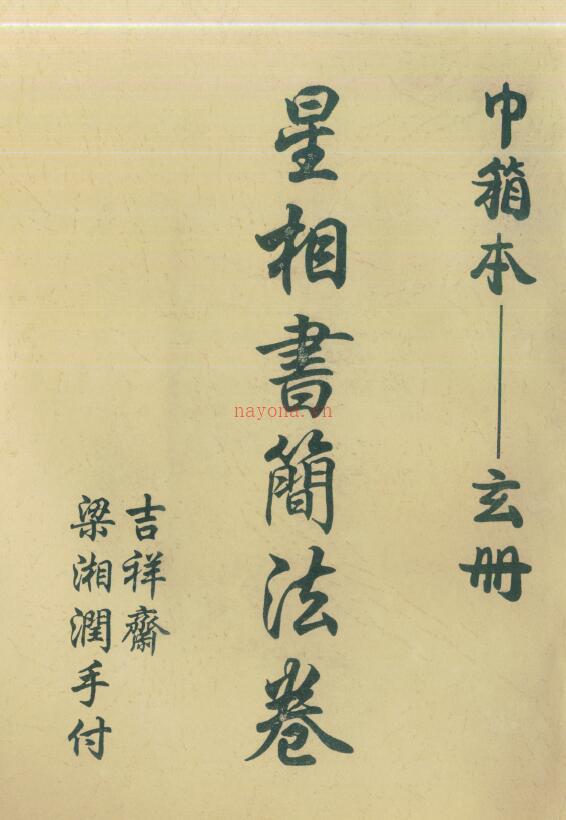 巾箱本——玄册
星相書簡法卷
吉祥齋
梁湘潤手付
nayona.cn